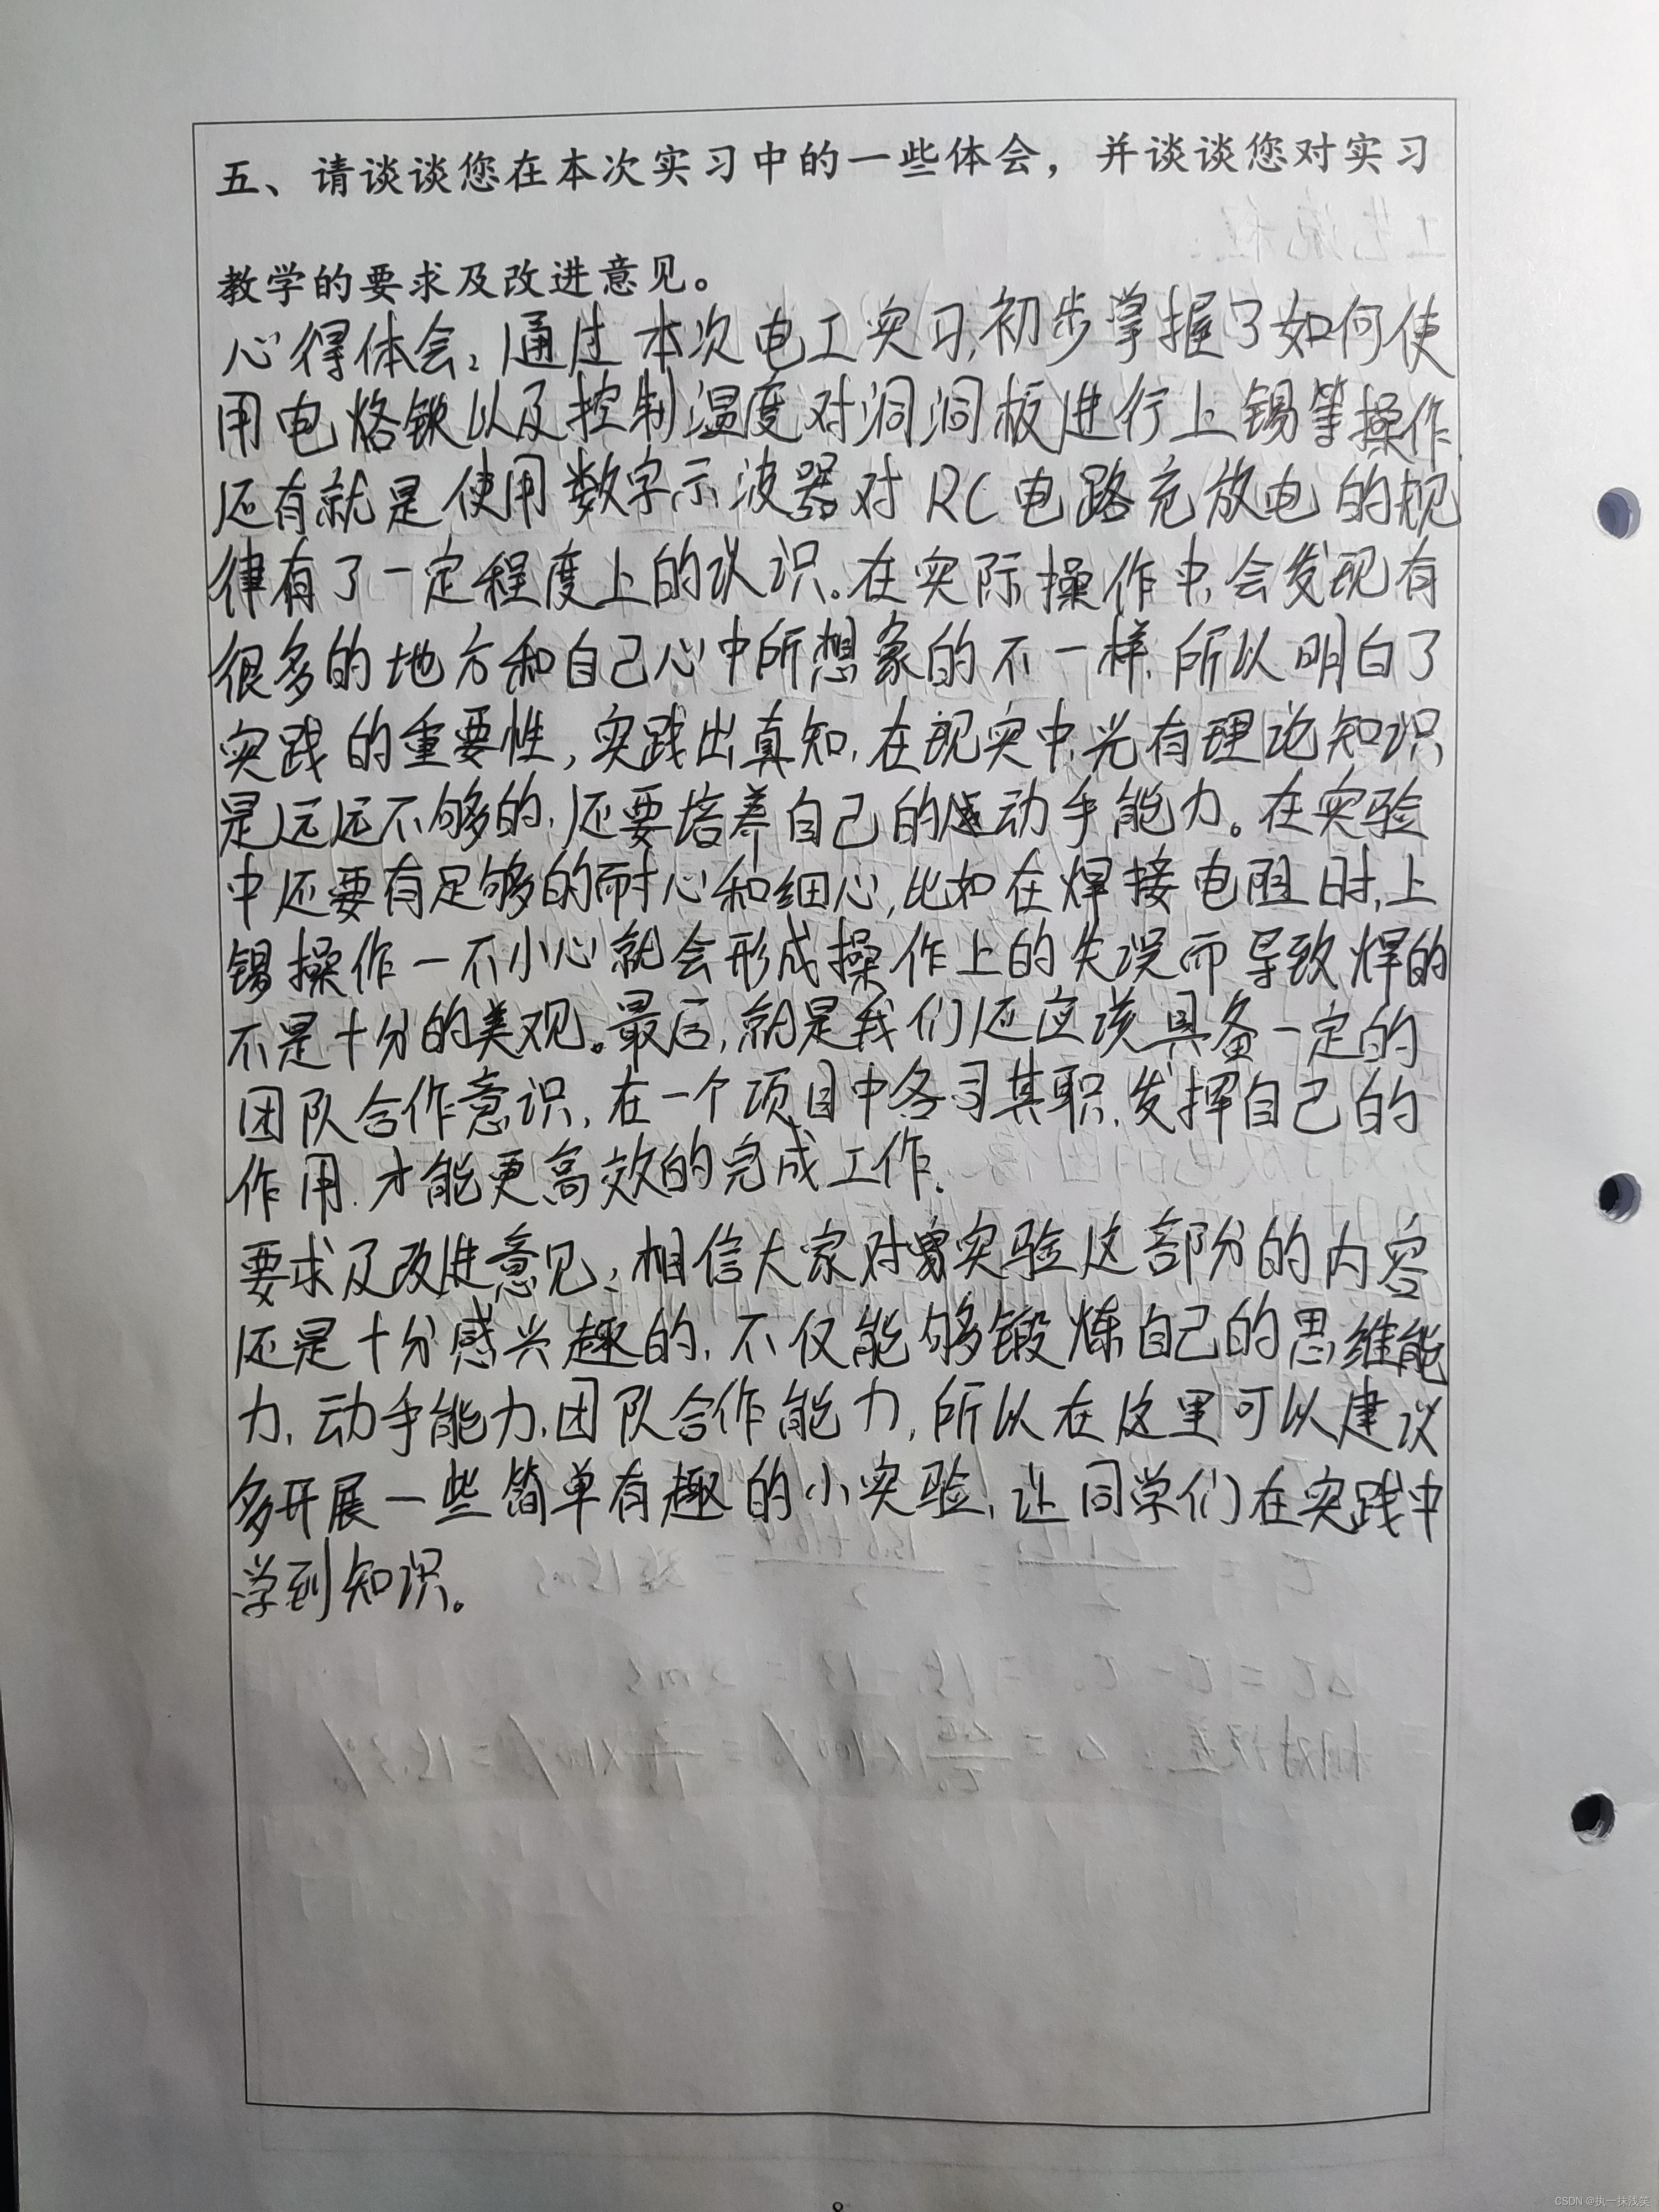 五、请谈谈您在本次实习中的一些体会，并谈谈您对实习
教学的要求及改进意见。
心得体会：通过本次电工实习，初步掌握了如何使
用电烙铁以及控制温度对洞洞板进行上锡等操作，
还有就是使用数字示波器对RC电路充放电的规
律有了一定程度上的认识。在实际操作中，会发现有
很多的地方和自己心中所想象的不一样，所以明白了
实践的重要性，实践出真知，在现实中，光有理论知识
是远远不够的，还要培养自己的动手能力。在实验
中还要有足够的耐心和细心，比如在焊接电阻时，上
锡操作一不小心就会形成操作上的失误而导致焊的
不是十分的美观。最后，就是我们还应该具备一定的
团队合作意识，在一个项目中各司其职，发挥自己的
作用，才能更高效的完成工作。
要求及改进意见：相信大家对实验这部分的内容
还是十分感兴趣的，不仅能够锻炼自己的思维能
力，动手能力，团队合作能力，所以在这里可以建议
多开展一些简单有趣的小实验，让同学们在实践中
学到知识。
8
CSDN @执一抹浅笑